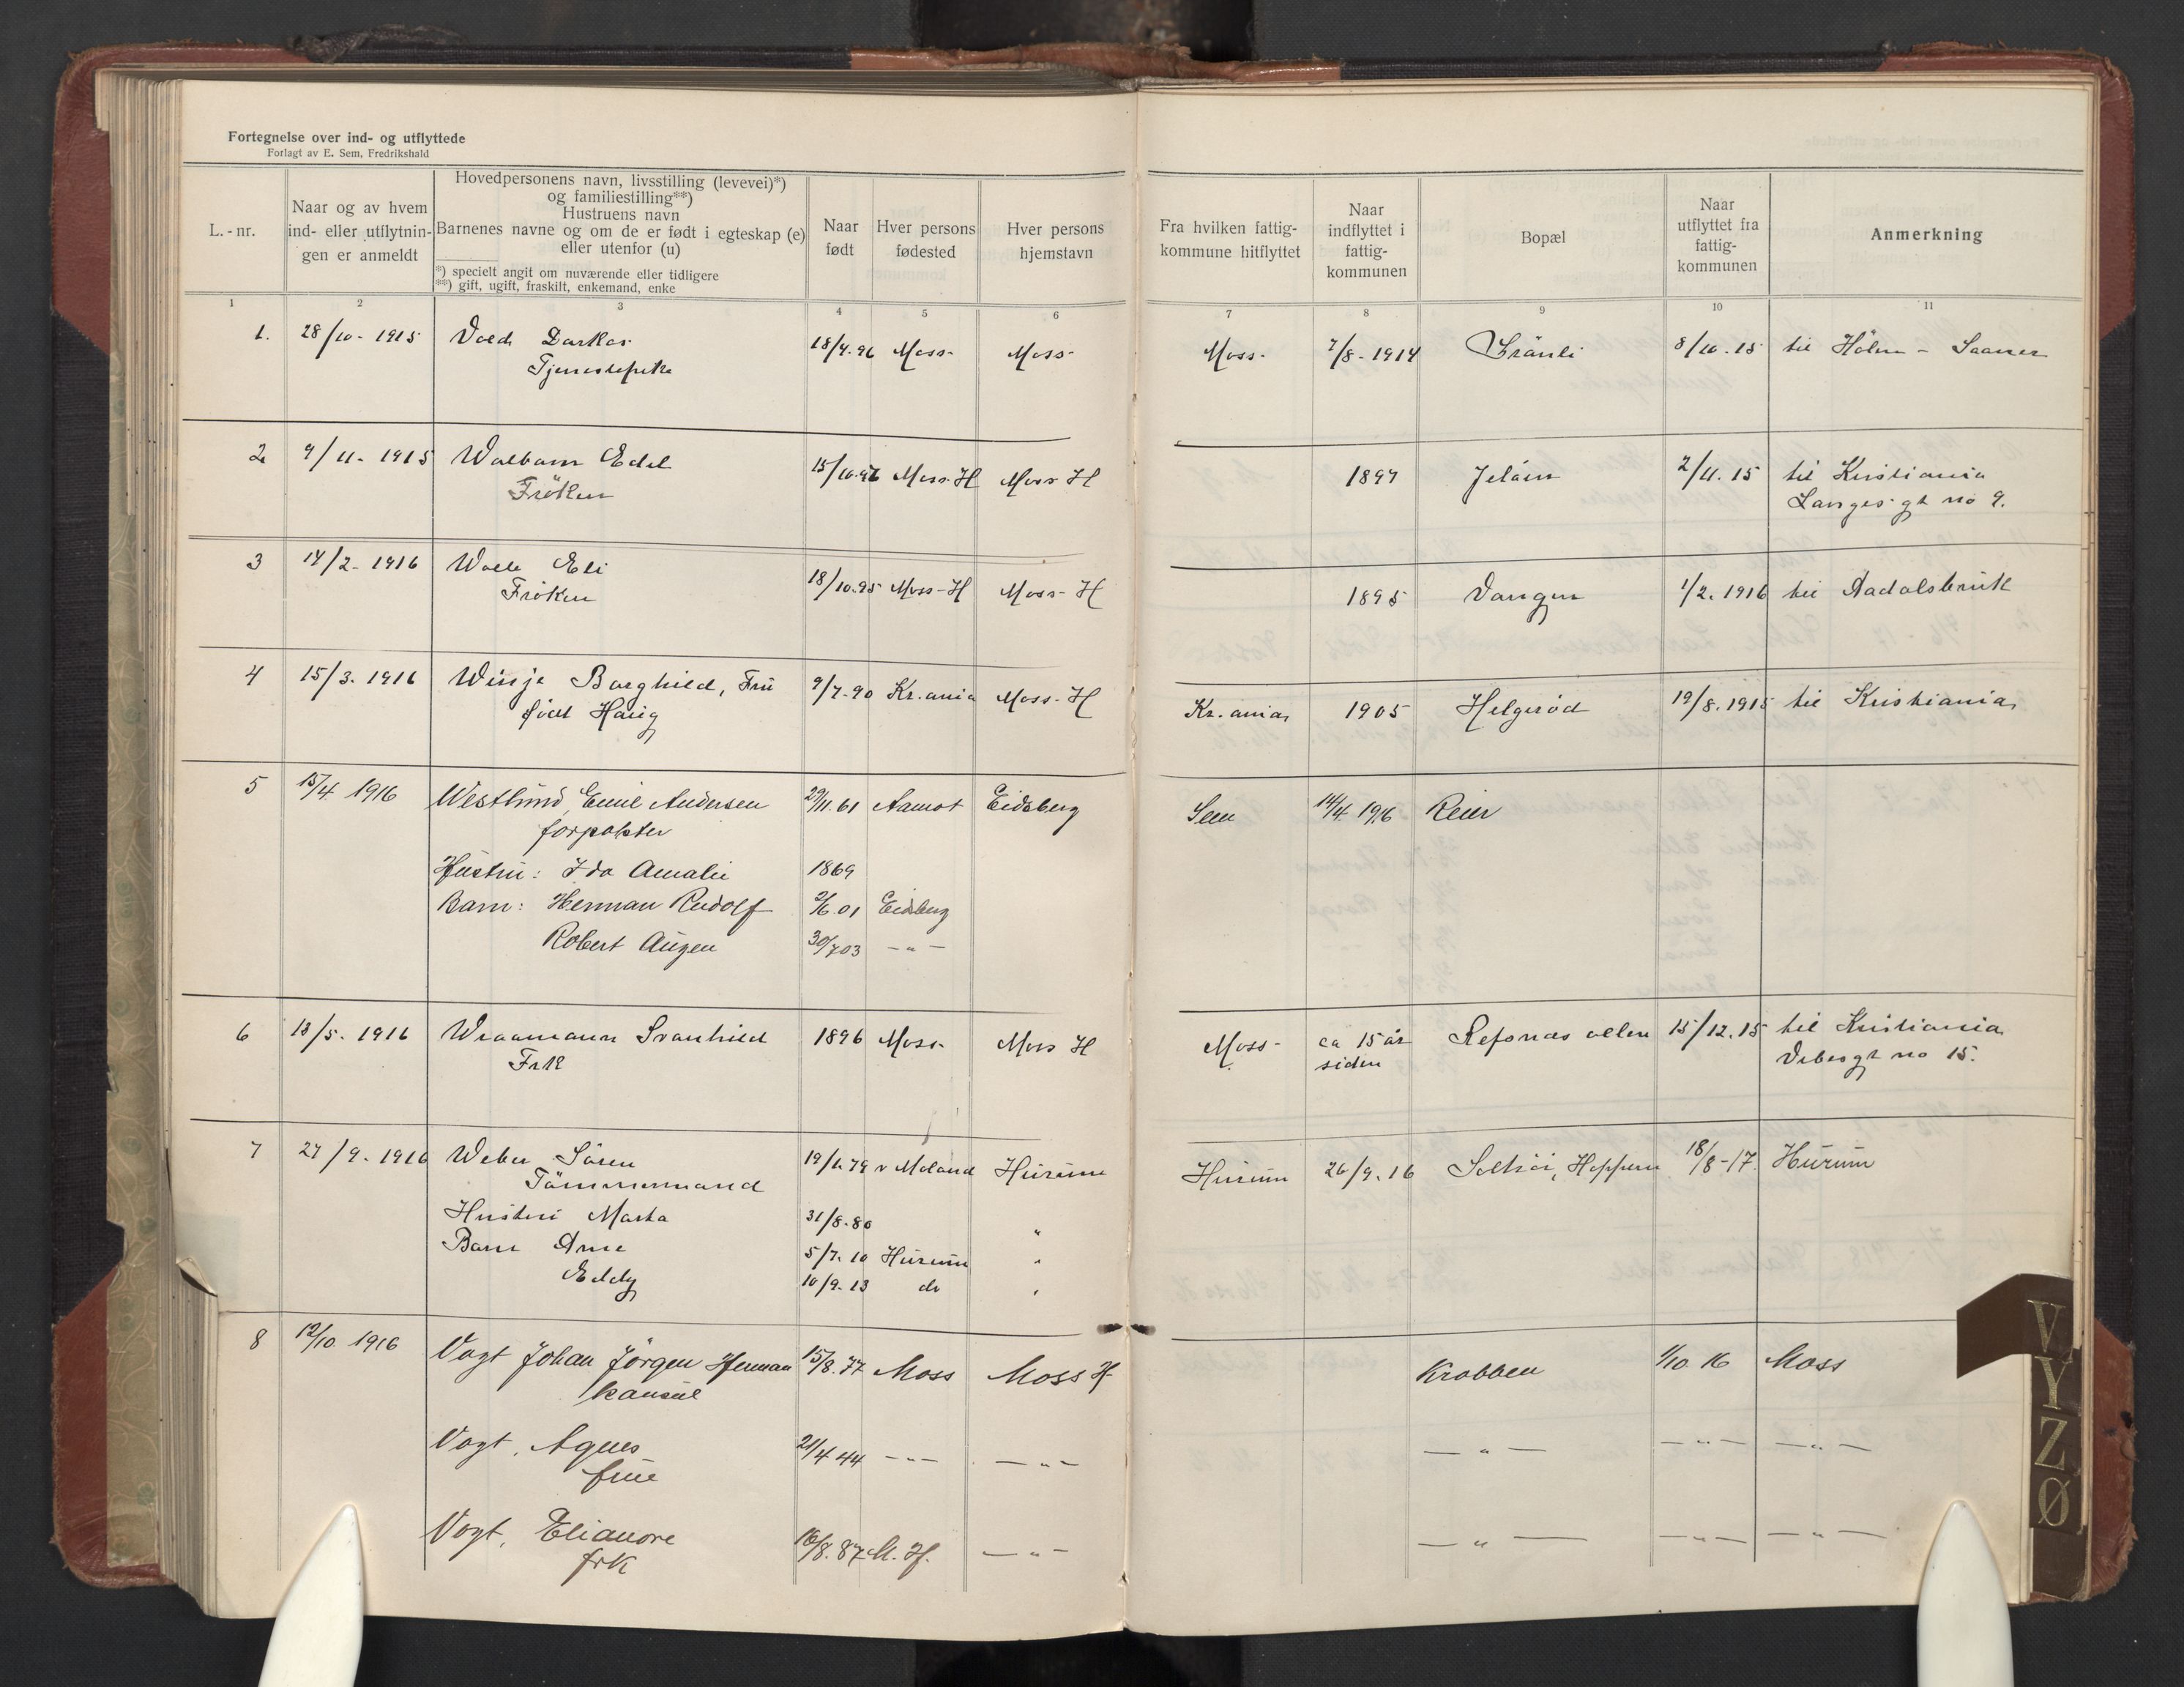 Fortegnelse over ind- og utflyttede
Forlagt av E. Sem, Fredrikshald
L.-nr.
Naar og av hvem ind- eller utflytnin- gen er anmeldt
Hovedpersonens navn, livsstilling (levevei)*)
og familiestilling**)
Hustruens navn
Barnenes navne og om de er født i egteskap (e)
eller utenfor (u)
*) specielt angit om nuværende eller tidligere
**) gift, ugift, fraskilt, enkemand, enke
Naar født
Hver persons fødested
Hver persons hjemstavn
Fra hvilken fattig- kommune hitflyttet
Naar indflyttet i fattig- kommunen
Bopæl
Naar utflyttet fra fattig- kommunen
Anmerkning
1 2 3 4 5 6 7 8 9 10 11
1. 28/10 - 1915 Vold Dorkas 18/4.96 Moss Moss Moss 7/8 - 1914 8/10.15 til Hölen - Saaner
Tjenestepike
2 9/11 - 1915 Walbom Edel 15/10.96 Moss-H Moss H 1897 Jelöen 2/11.15 til Kristiania
Fröken Langes gt no 9.
3 14/2 - 1916 Wolle Eli 18/10.95 Moss-H Moss-H 1895 Vangen 1/2.1916 til Aadalsbruk
Fröken
4 15/3. 1916 Winje Borghild, Frü 9/7-90 Kr.ania Moss-H Kr.ania 1905 Helgerød 19/8.1915 til Kristiania
födt Haüg
5 15/4 1916 Westlund, Emil Andersen 29/11.61 Aamot Eidsberg Sem 14/4 1916 Reier
forpakter
Hüstrü: Ida Amalie 1869
Barn: Herman Rudolf 2/6 01 Eidsberg
Robert Aügen 30/7 03 - " -
6 13/5. 1916 Wraamann Svanhild 1896 Moss Moss H Moss ca 15 år Refsnes alleen 15/12.15 til Kristiania
Frk siden Vibesgt no 15.
7 27/9. 1916 Weber Sören 19/1.79 Moland Hürüm Hürüm 26/9.16 Solhöi, Hoppern 18/8-17. Hürüm
Tömmermand
Hustrü Marta 31/8.80 "
Barn Arne 5/7.10 Hürüm "
Eddy 10/9.13 do "
8 12/10 1916 Vogt Johan Jörgen Herman 15/8.77 Moss Moss H Krabben 1/10 16 Moss
konsül
Vogt, Agnes 21/4 44 - " - - " - - " - - " - - " -
früe
Vogt, Elianore 16/8.87 M. H. - " - - " - - " - - " -
frk
V
Y
Z
Ø